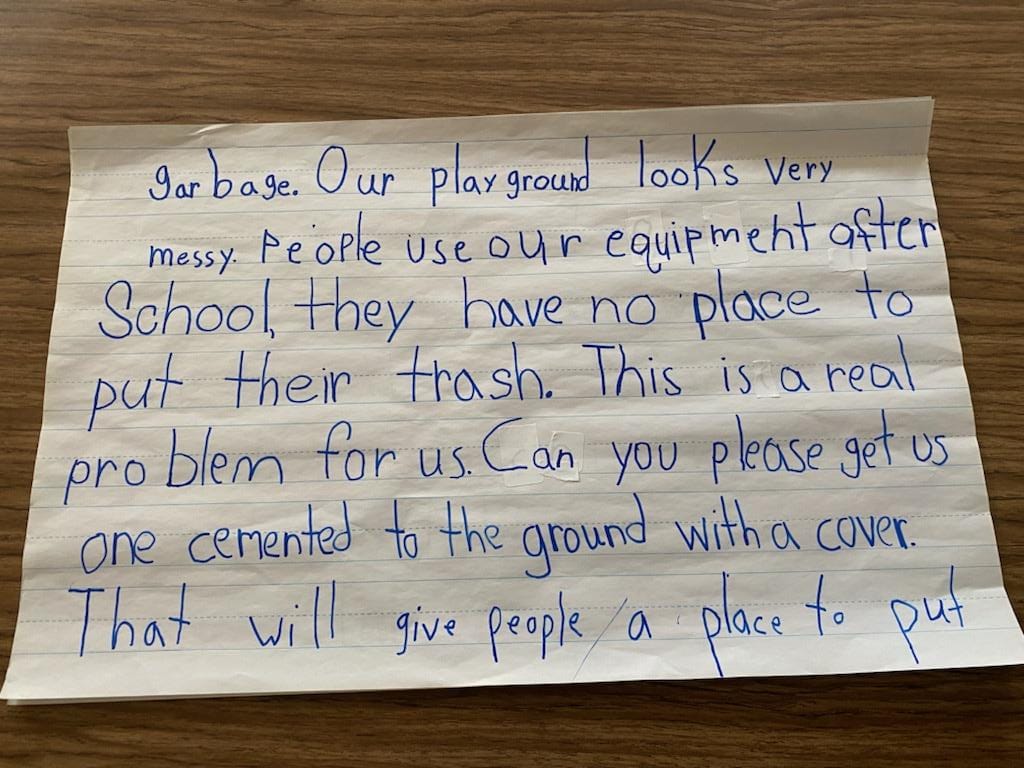 garbage. Our playground looks very
messy. People use our equipment after
School, they have no place to
put their trash. This is a real
problem for us. Can you please get us
one cemented to the ground with a cover.
That will give people / a place to put